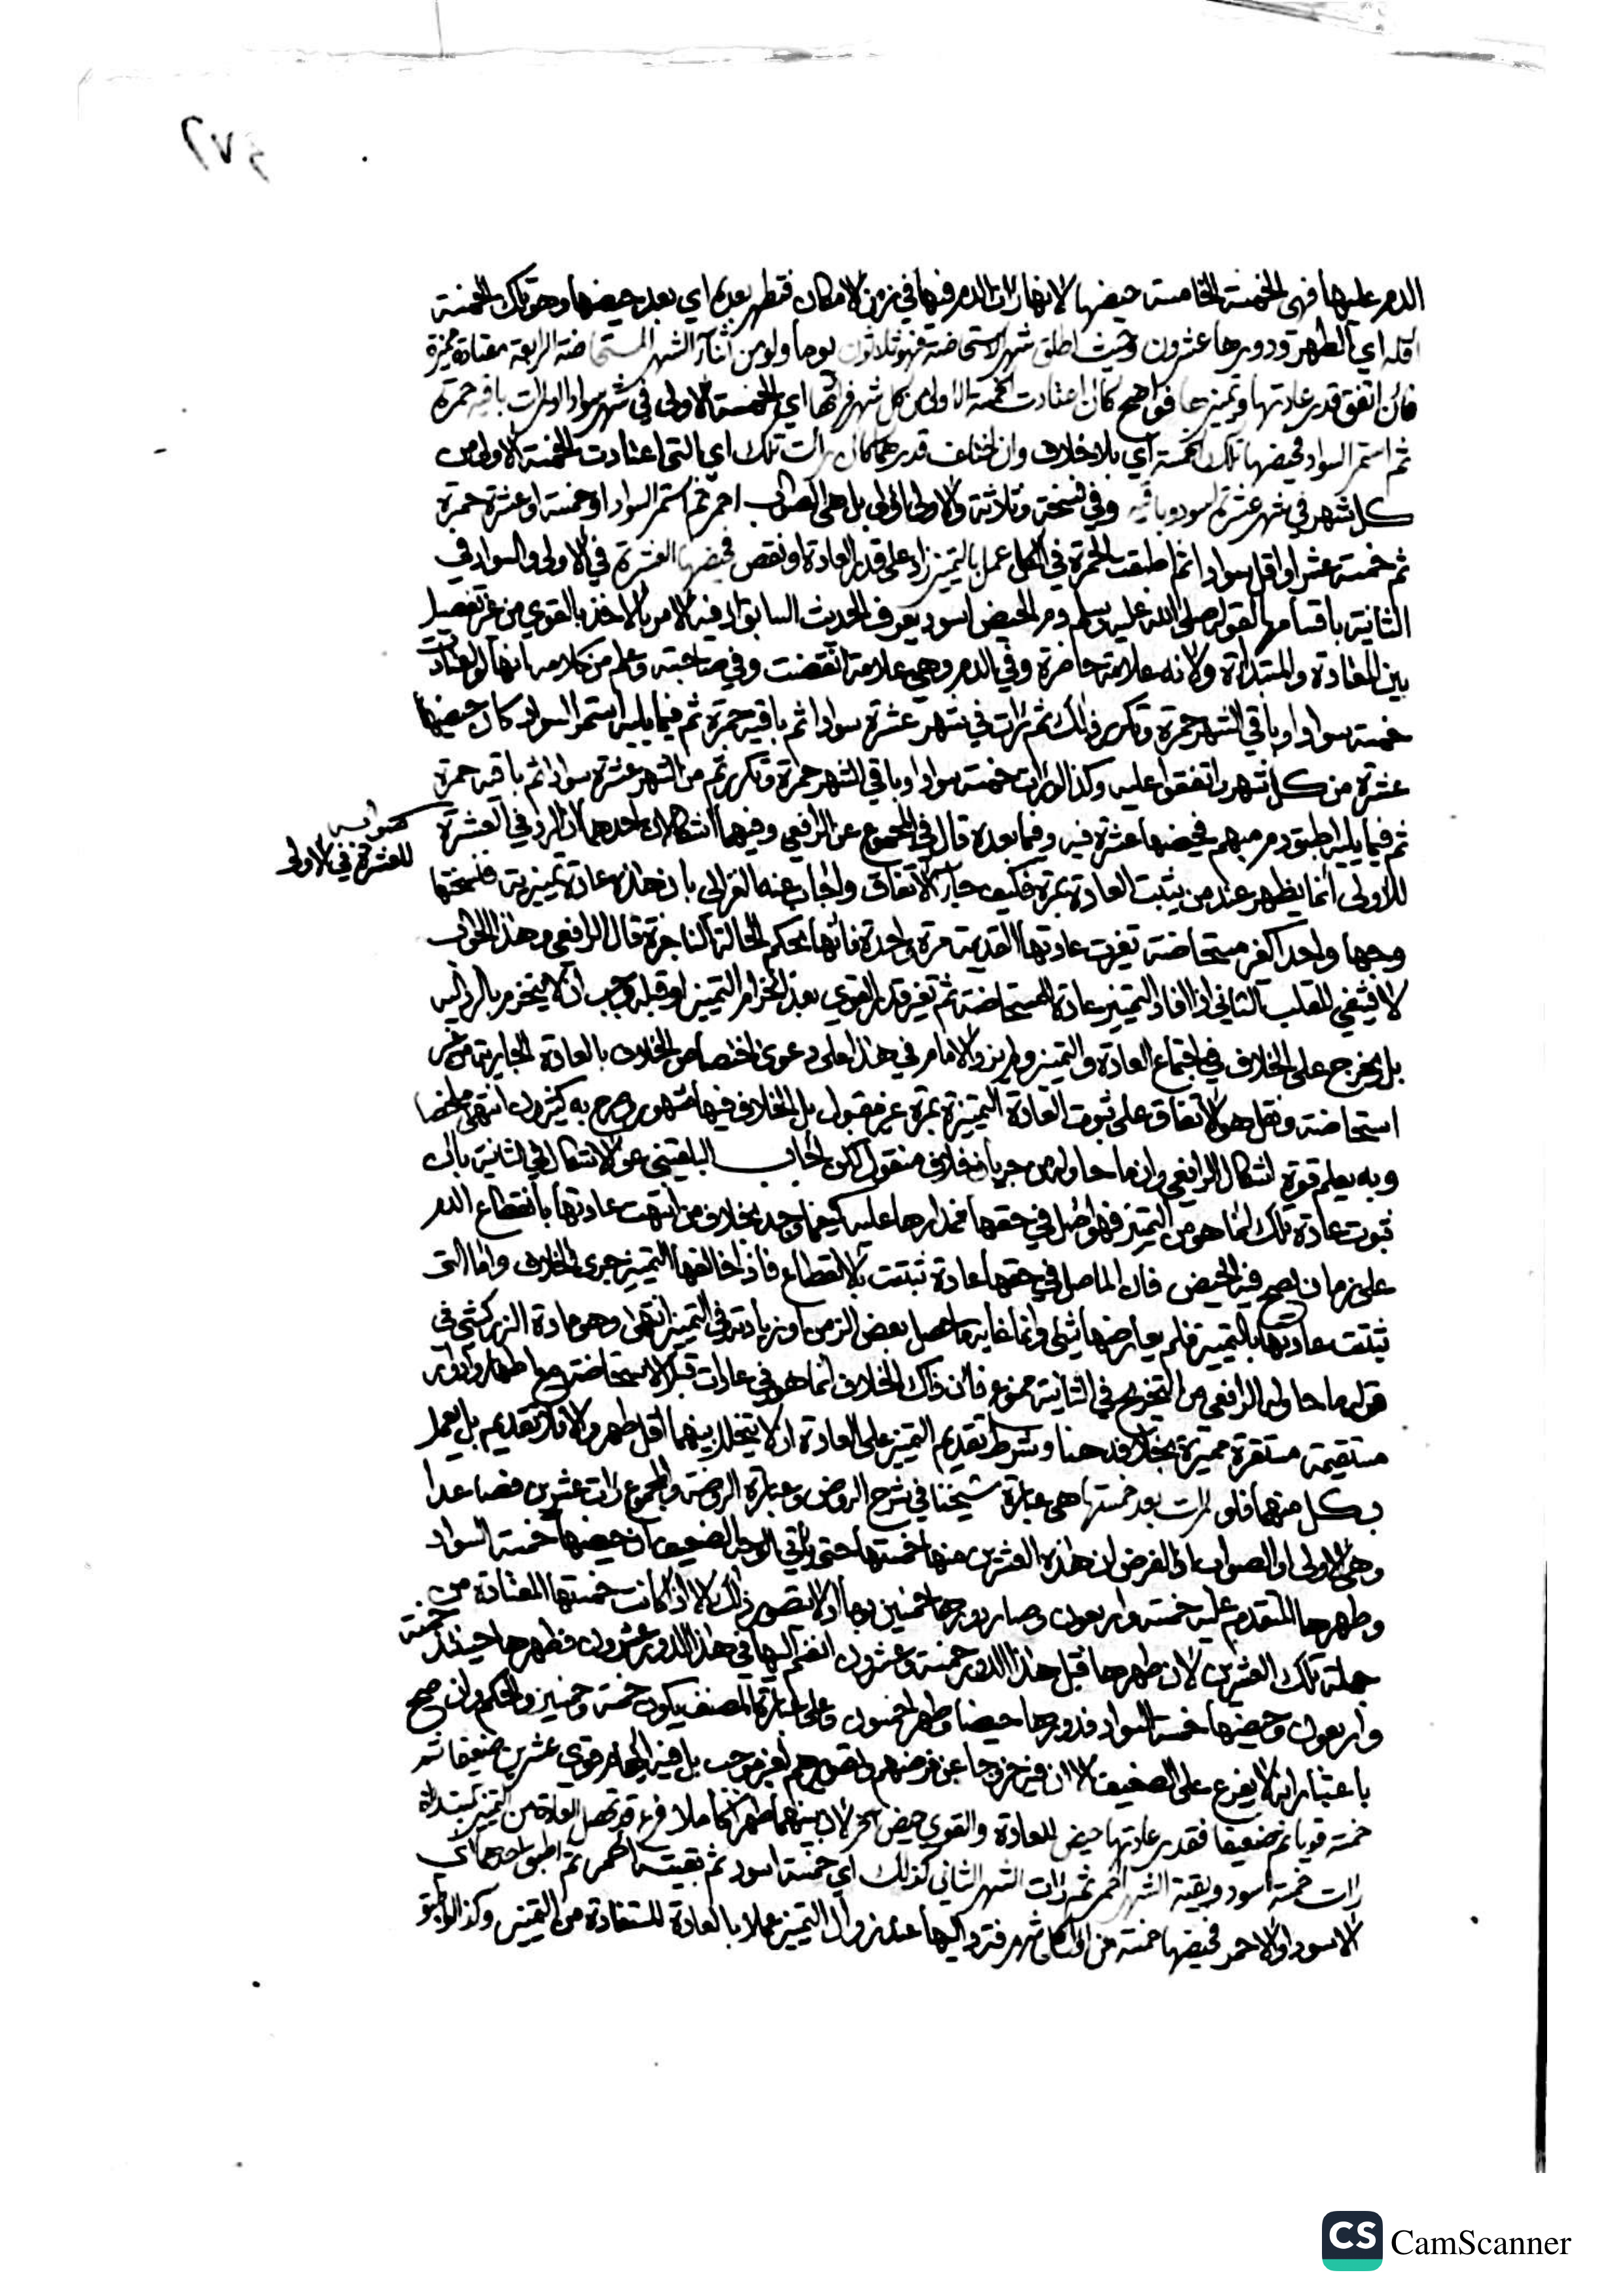 الدم عليها فهي الخمسة الخامسة حيضها لانها رات الدم فيها في زمن الامكان فتطهر بعدها اي بعد حيضها وهو تلك الخمسة
اقله اي الطهر ودورها عشرون وحيث اطلق شهر الاستحاضة فهو ثلاثون يوما ولو من اثناء الشهر المستحاضة الرابعة معتادة مميزة
فان اتفق قدر عادتها وتمييزها فواضح كان اعتادت الخمسة الاولى من كل شهر فراتها اي الخمسة الاولى في شهر سوادا ورات باقيه حمرة
ثم استمر السواد فحيضها تلك الخمسة اي بلا خلاف وان اختلف قدرهما كان رات تلك اي التي اعتادت الخمسة الاولى من
كل شهر في شهر عشرة اسود وباقيه وفي نسخة وثلاثة والاولى اولى بل هي الصواب احمر ثم استمر السواد او خمسة او عشرة حمرة
ثم خمسة عشر او اقل سوادا ثم اطبقت الحمرة في الكل عمل بالتمييز زاد على قدر العادة او نقص فحيضها العشرة في الاولى والسواد في
الثانية باقسامها لقوله صلى الله عليه وسلم دم الحيض اسود يعرف الحديث السابق اذ فيه الامر بالاخذ بالقوي من غير تفصيل
بين المعتادة والمبتداة ولانه علامة حاضرة وفي الدم وهي علامة انقضت وفي صاحبته وعلم من كلامه انها لو اعتادت
خمسة سوادا وباقي الشهر حمرة وتكرر ذلك ثم رات في شهر عشرة سوادا ثم باقيه حمرة ثم فيما يليه استمر السواد كان حيضها
عشرة من كل شهر واتفقوا عليه وكذا لو رات خمسة سوادا وباقي الشهر حمرة وتكرر ثم من الشهر عشرة سوادا ثم باقيه حمرة
ثم فيما يليه اطبق دم مبهم فحيضها عشرة فيه وفيما بعده قال في المجموع عن الرافعي وفيهما اشكالان احدهما ان الرد في العشرة
صوابه
للعشرة في الاولى
للاولى انما يظهر عند من يثبت العادة بمرة فكيف جاء الاتفاق واجاب عنه الغزالي بان هذه عادة تمييزية فنسختها
وجها واحدا كغير مستحاضة تغيرت عادتها القديمة مرة واحدة فانها تحكم للحالة الناجزة قال الرافعي وهذا الجواب
لا يشفي القلب الثاني اذا افاد التمييز عادة المستحاضة ثم تغير قدر القوي بعد انخرام التمييز او قبله وجب ان لا يجزم بالرد اليه
بل يخرج على الخلاف في اجتماع العادة والتمييز ولم يزد الامام في هذا على دعوى اختصاص الخلاف بالعادة الجارية من غير
استحاضة ونقل هو الاتفاق على ثبوت العادة التمييزية بمرة غير مقبول بل الخلاف فيها مشهور صرح به كثيرون انتهى ملخصا
وبه يعلم قوة اشكال الرافعي وان ما حاوله من جريان خلاف منقول لكن اجاب البلقيني عن الاشكال في الثانية بان
ثبوت عادة تلك انما هو من التمييز فهو اصل في حقها فمدارها عليه كيفما وجد بخلاف من انتهت عادتها بانقطاع الدم
على زمان يصح فيه الحيض فان الحاصل في حقها عادة ثبتت بالانقطاع فاذا خالفها التمييز جرى الخلاف واما التي
ثبتت عادتها بالتمييز فلم يعارضها شي وانما غايته ما حصل بعض الزمن او زيادته في التمييز انتهى وهو مادة الزركشي في
قوله ما حاوله الرافعي من التخريج في الثانية ممنوع فان ذاك الخلاف انما هو في عادات قبل الاستحاضة مع اطهار وادوار
مستقيمة مستقرة مميزة بخلافه هنا وشرط تقديم التمييز على العادة ان لا يتخلل بينهما اقل طهر والا فلا تقديم بل يعمل
بكل منهما فلو رات بعد خمستها هي عبارة شيخنا في شرح الروض وعبارة الروضة والمجموع رات عشرين فصاعدا
وهي الاولى او الصواب اذ الفرض ان هذه العشرين منها خمستها حتى ياتي الوجه الضعيف ان حيضها خمسة السواد
وطهرها المتقدم عليه خمسة واربعون وصار دورها خمسين يوما اذ لا يتصور ذلك الا اذا كانت خمستها المعتادة من
جملة تلك العشرين لان طهرها قبل هذا الدور خمسة وعشرون انضم اليها في هذا الدور عشرون فطهرها حينئذ خمسة
واربعون وحيضها خمسة السواد فدورها حيضا وطهرا خمسون وعلى عبارة المصنف يكون خمسة وخمسين والحكم وان صح
باعتبار انه لا يفرع على الضعيف الا ان فيه خروجا عن فرضهم وتصويرهم لغير موجب بل فيه ايهام قوي عشرين ضعيفا ثم
خمسة قويا ثم ضعيفا فقدر عادتها حيض للعادة والقوي حيض اخر لان بينهما طهرا كاملا فرع قد تحصل العادة من التمييز كمبتداة
رات خمسة اسود وبقية الشهر احمر ثم رات الشهر الثاني كذلك اي خمسة اسود ثم بقيته احمر ثم اطبق احدهما اي
الاسود او الاحمر فحيضها خمسة من اول كل شهر فترد اليها عند زوال التمييز عملا بالعادة المستفادة من التمييز وكذا لو اطبق
CS CamScanner